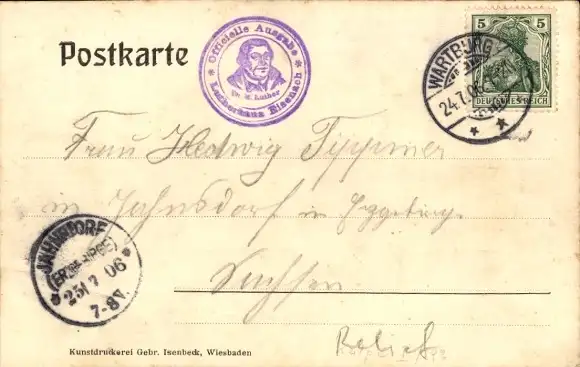 Postkarte
* Officielle Ausgabe *
Dr. M. Luther
Lutherhaus Eisenach
WARTBURG
24.7.06
* *
5 5
DEUTSCHES REICH
Frau Hedwig Tippmer
in Jahnsdorf in Erzgebirg.
Sachsen
JAHNSDORF
(ERZGEBIRGE)
* 25/7 06 *
7-8V.
Relief
Kunstdruckerei Gebr. Isenbeck, Wiesbaden